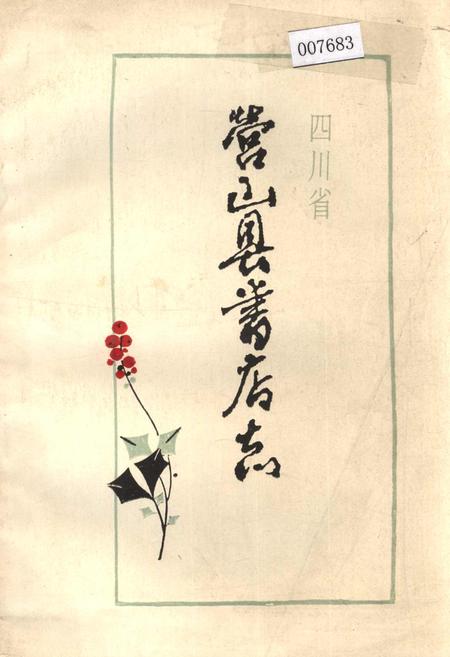 007683
四川省
营山县书店志